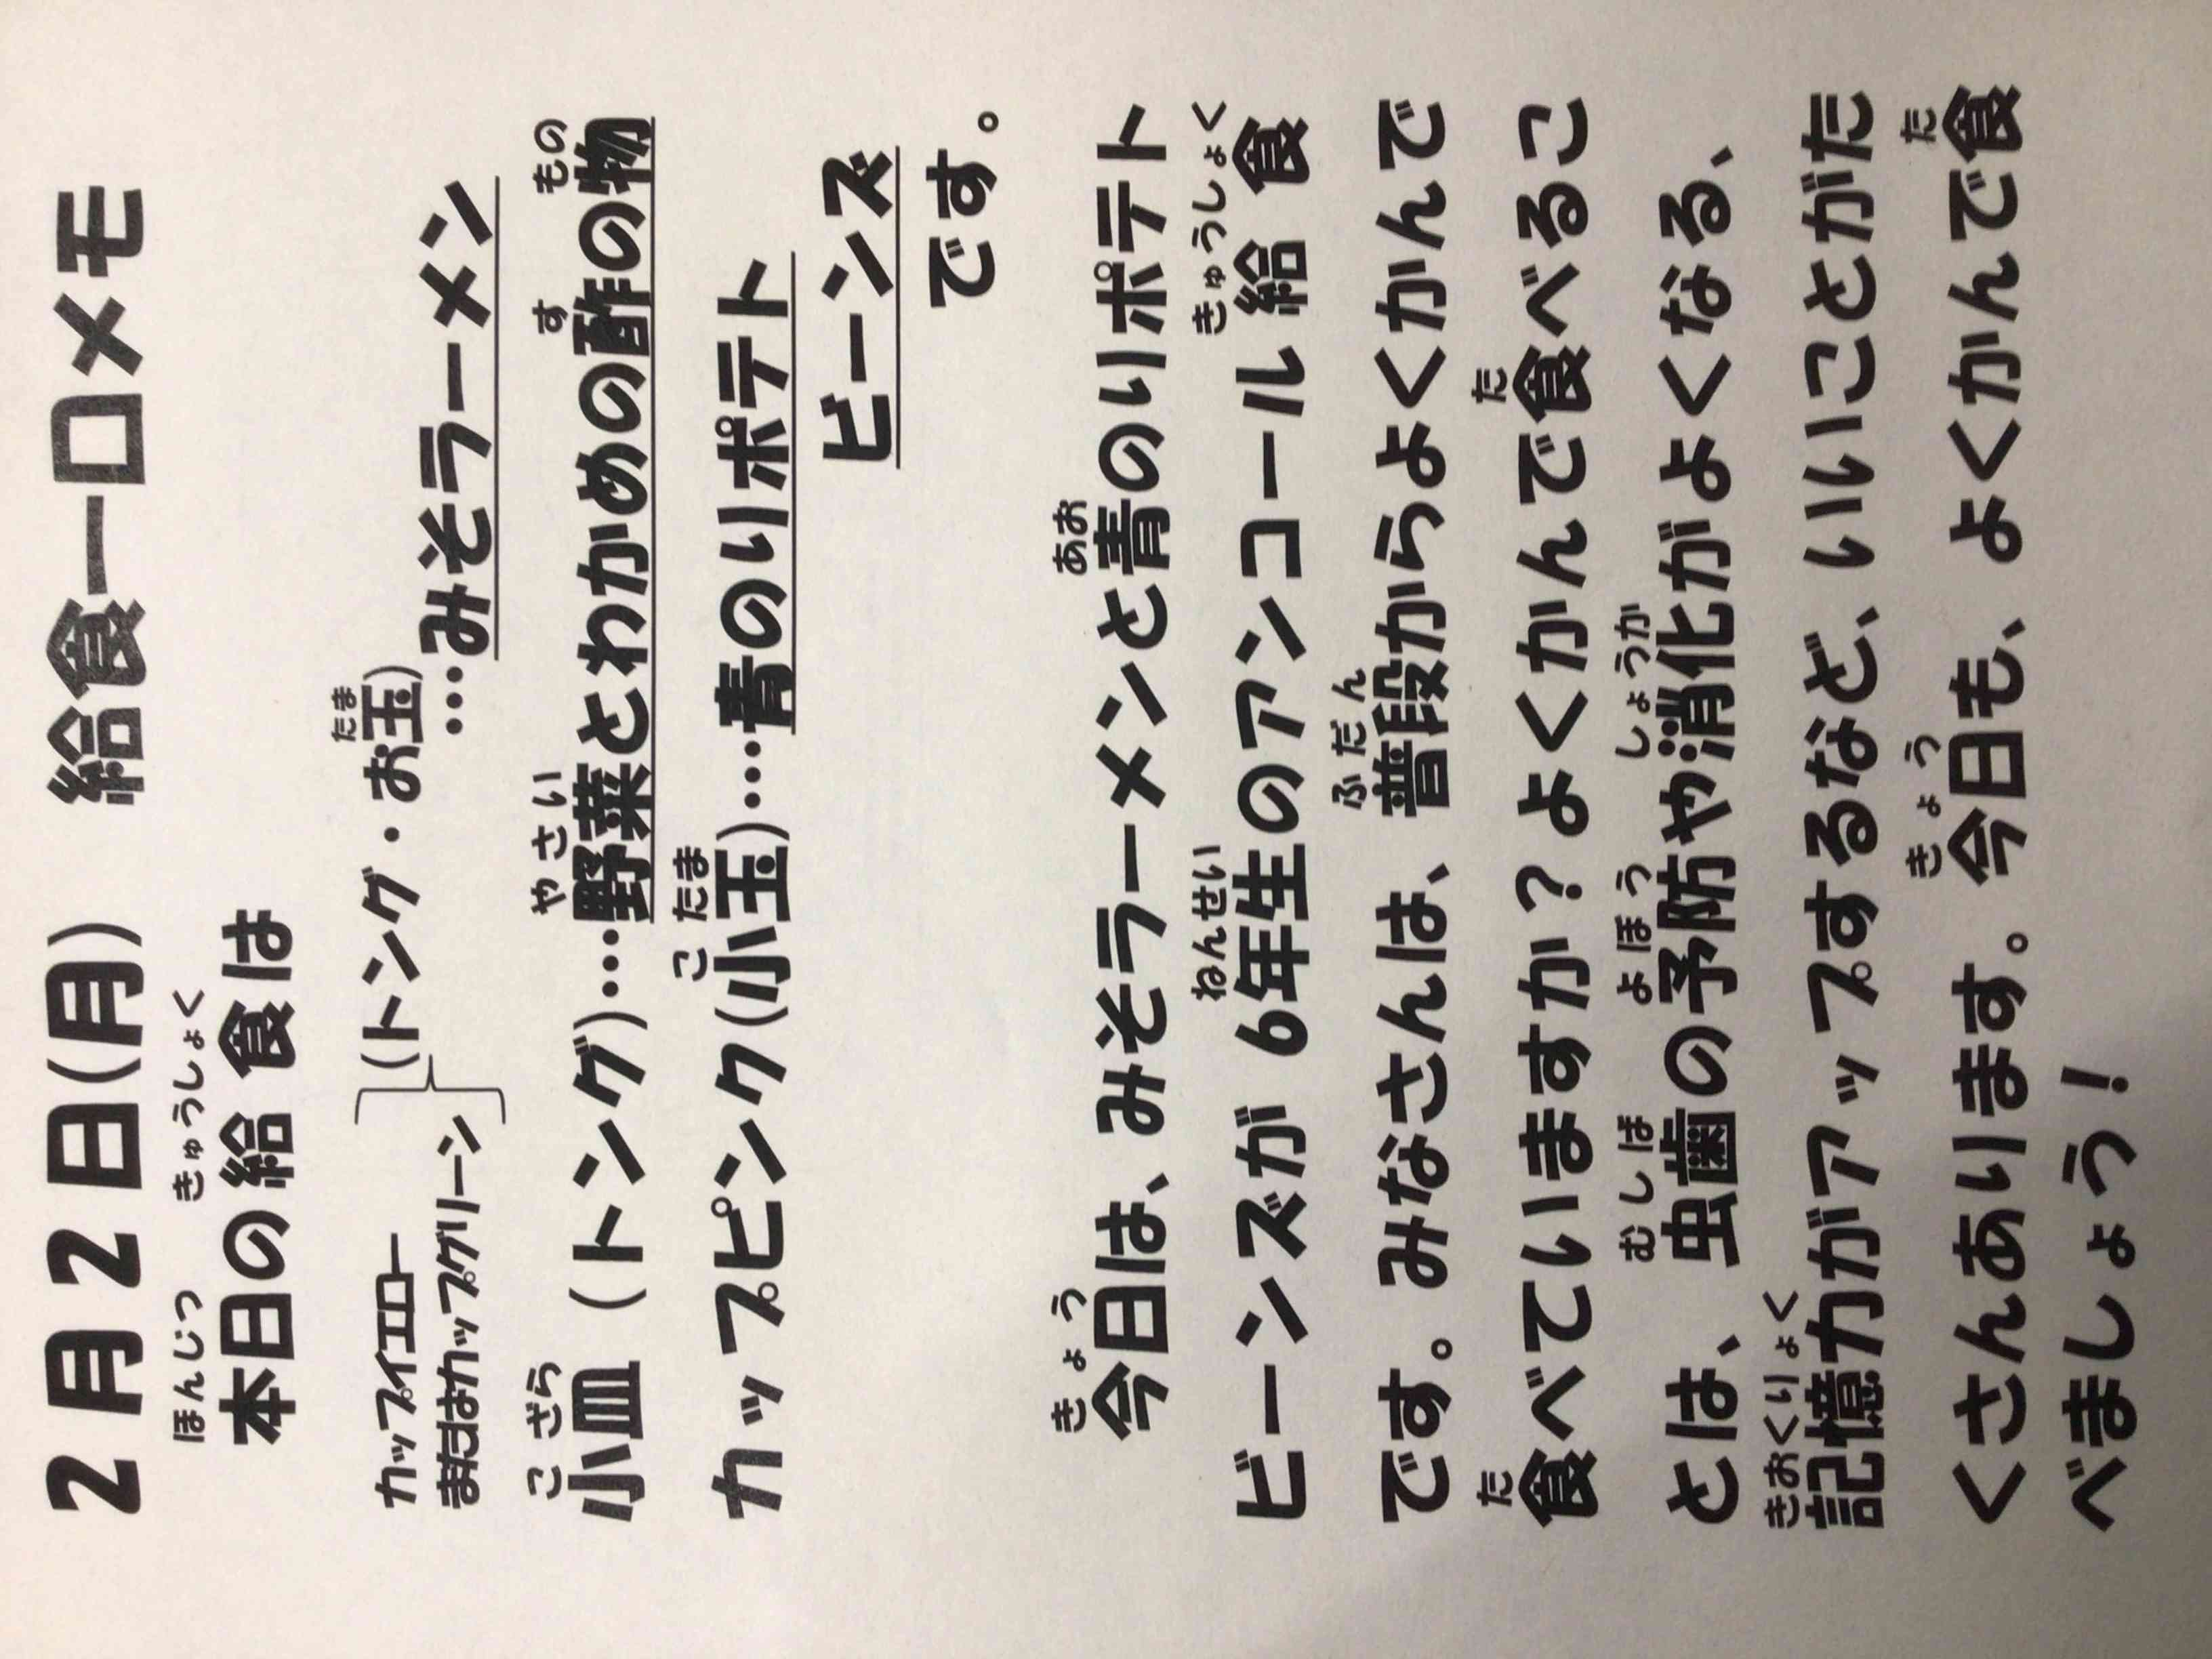 2月2日(月) 給食一口メモ
本日の給食は
カップイエロー
またはカップグリーン
(トング・お玉)
…みそラーメン
小皿(トング)…野菜とわかめの酢の物
カップピンク(小玉)…青のりポテト
ビーンズ
です。
今日は、みそラーメンと青のりポテト
ビーンズが6年生のアンコール給食
です。みなさんは、普段からよくかんで
食べていますか？よくかんで食べるこ
とは、虫歯の予防や消化がよくなる、
記憶力がアップするなど、いいことがた
くさんあります。今日も、よくかんで食
べましょう！